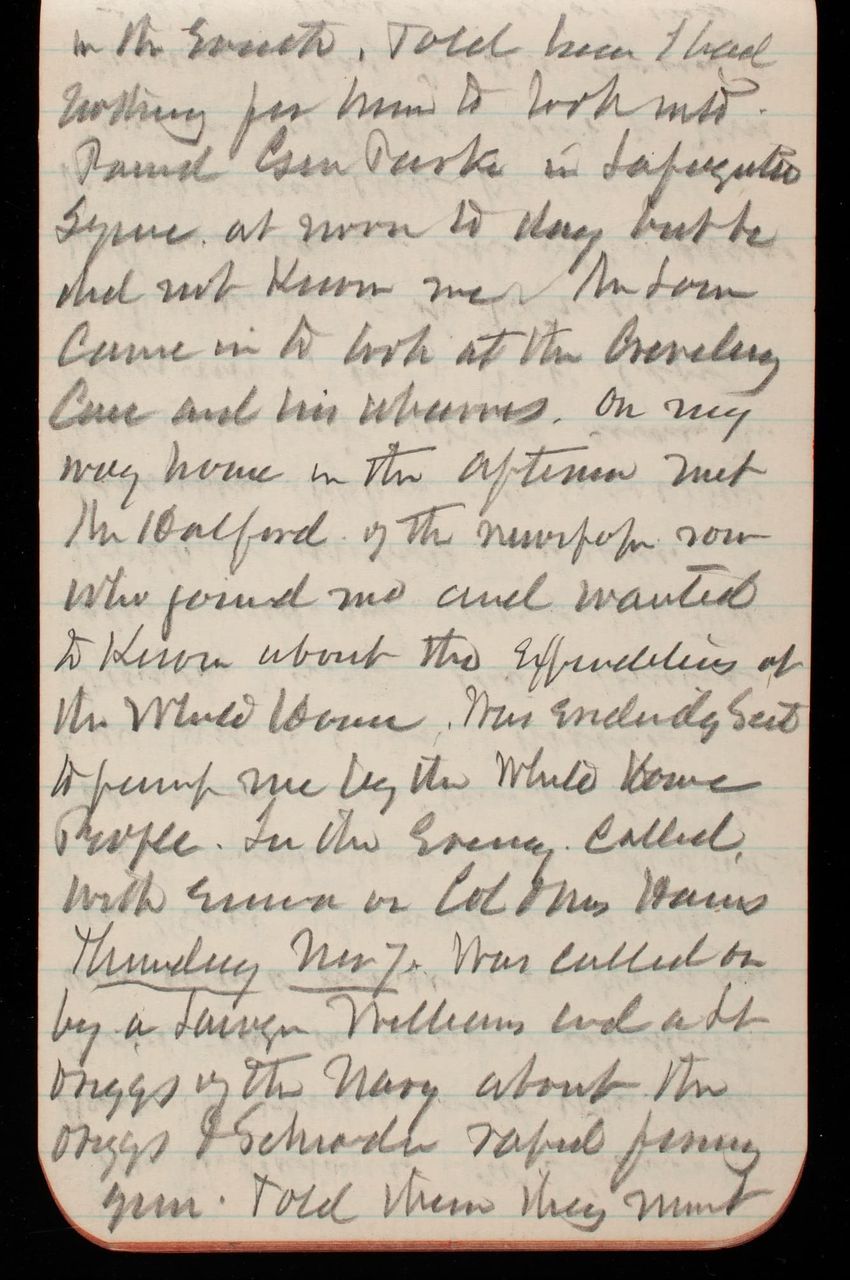 in the South. Told him I had
nothing for him to look into.
Found Gen Parke in Lafayette
Square at noon to day but he
did not know me. Mr
Came in to look at the
Case and his
. On my
way home in the afternoon met
Mr Halford of the newspaper row
who joined me and wanted
to know about the expenditures at
the White House. Was evidently sent
to pump me by the White House
People. In the Evening called
with Emma on Col & Mrs Hains
Thursday Nov 7. Was called on
by a Lawyer Williams and a Lt
Driggs of the Navy about the
Driggs & Schroder rapid firing
gun. Told them they must